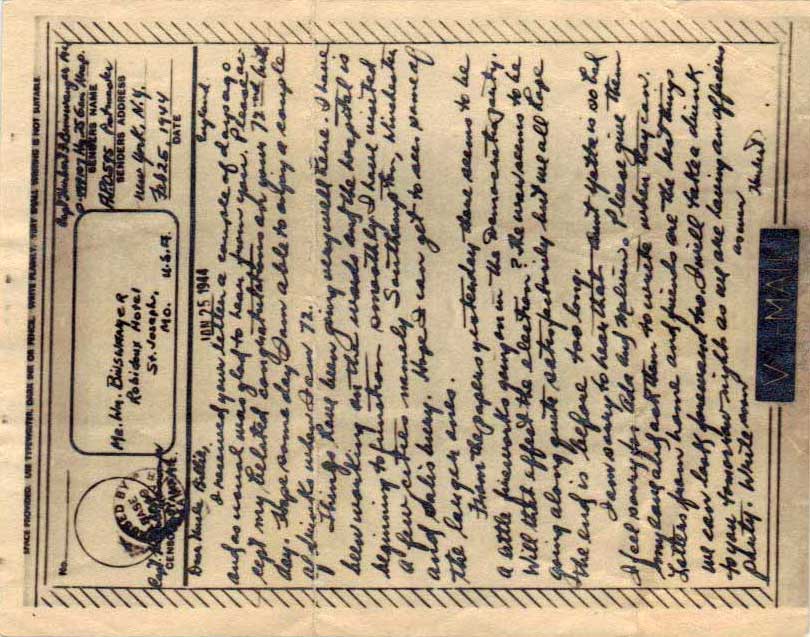 SPACE PROVIDED. USE TYPEWRITER, DARK INK OR PENCIL. WRITE PLAINLY. VERY SMALL WRITING IS NOT SUITABLE.
No.
Mr. Wm. Binswanger
Robidoux Hotel
St. Joseph,
Mo. U.S.A.
Capt Herbert
Hq
SENDERS NAME
APO 595 Postmaster
SENDERS ADDRESS
New York, N.Y.
Feb 25, 1944
DATE
CENSOR'S
JAN 25 1944
England
Dear Uncle Billie,
I received your letter a couple of days ago
and as usual was glad to hear from you. Please ac-
cept my belated congratulations on your 72nd birth
day. Hope some day I am able to enjoy a couple
of drinks when I am 72.
Things have been going very well here. I have
been working on the wards and the hospital is
beginning to function smoothly. I have visited
a few cities namely Southampton, Winchester
and Salisbury. Hope I can get to see some of
the larger ones.
From the papers yesterday there seems to be
a little fireworks going on in the Democratic party.
Will that affect the election? The war seems to be
going along quite satisfactorily but we all hope
the end is before too long.
I am sorry to hear that Aunt Yetta is so bad
I feel sorry for and . Please give them
my love and ask them to write when they can.
Letters from home and friends are the best things
we can look forward to. I will take a drink
to you tomorrow night as we are having an officers
party. Write and
as ever
Herbert
V···—MAIL